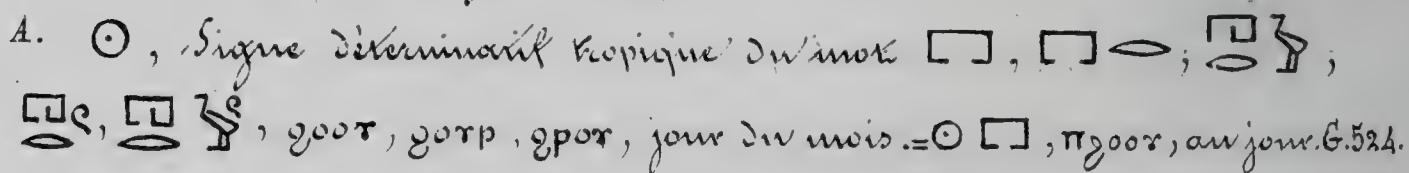 A. 𓇳, Signe déterminatif tropique du mot 𓉐, 𓉐𓂋; 𓉔𓂋𓅱;
𓉔𓂋𓏲, 𓉔𓂋𓅱𓏲, ϩⲟⲟⲩ, ϩⲟⲩⲣ, ϩⲣⲟⲩ, jour du mois.=𓇳 𓉐, ⲡϩⲟⲟⲩ, au jour. G. 524.